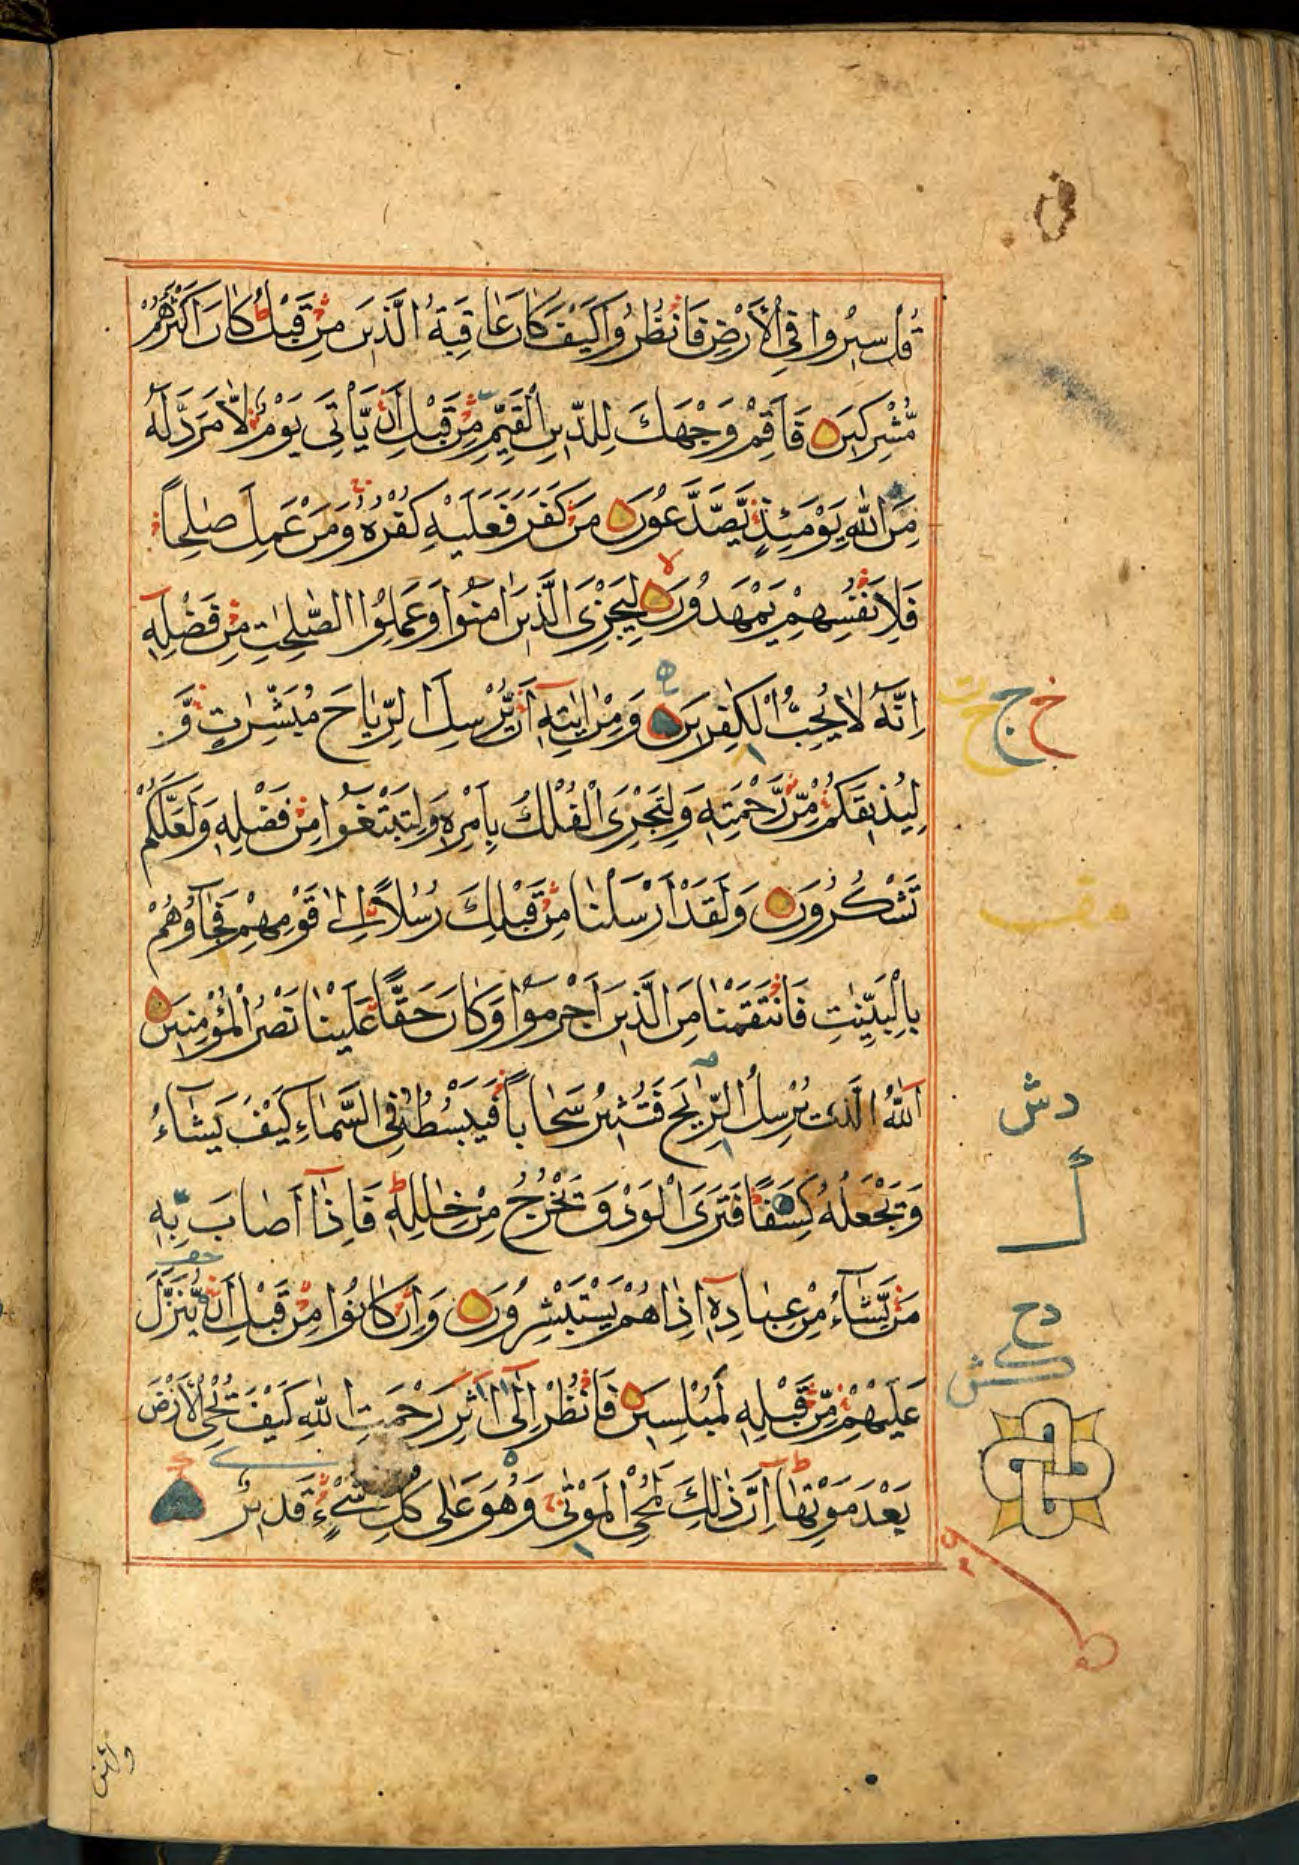 قُلْ سِيرُوا فِي الْأَرْضِ فَانْظُرُوا كَيْفَ كَانَ عَاقِبَةُ الَّذِينَ مِنْ قَبْلُ كَانَ أَكْثَرُهُمْ
مُّشْرِكِينَ فَأَقِمْ وَجْهَكَ لِلدِّينِ الْقَيِّمِ مِنْ قَبْلِ أَنْ يَّأْتِيَ يَوْمٌ لَّا مَرَدَّ لَهُ
مِنَ اللّٰهِ يَوْمَئِذٍ يَّصَّدَّعُونَ مَنْ كَفَرَ فَعَلَيْهِ كُفْرُهُ وَمَنْ عَمِلَ صٰلِحًا
فَلِأَنْفُسِهِمْ يَمْهَدُونَ لِيَجْزِيَ الَّذِينَ اٰمَنُوا وَعَمِلُوا الصّٰلِحٰتِ مِنْ فَضْلِهِ
اِنَّهُ لَا يُحِبُّ الْكٰفِرِينَ وَمِنْ اٰيٰتِهِ أَنْ يُّرْسِلَ الرِّيَاحَ مُبَشِّرٰتٍ وَّ
لِيُذِيقَكُمْ مِّنْ رَّحْمَتِهِ وَلِتَجْرِيَ الْفُلْكُ بِأَمْرِهِ وَلِتَبْتَغُوا مِنْ فَضْلِهِ وَلَعَلَّكُمْ
تَشْكُرُونَ وَلَقَدْ أَرْسَلْنَا مِنْ قَبْلِكَ رُسُلًا اِلٰى قَوْمِهِمْ فَجَآؤُهُمْ
بِالْبَيِّنٰتِ فَانْتَقَمْنَا مِنَ الَّذِينَ أَجْرَمُوا وَكَانَ حَقًّا عَلَيْنَا نَصْرُ الْمُؤْمِنِينَ
اَللّٰهُ الَّذِي يُرْسِلُ الرِّيٰحَ فَتُثِيرُ سَحَابًا فَيَبْسُطُهُ فِي السَّمَاءِ كَيْفَ يَشَاءُ
وَيَجْعَلُهُ كِسَفًا فَتَرَى الْوَدْقَ يَخْرُجُ مِنْ خِلٰلِهِ فَاِذَا أَصَابَ بِهِ
مَنْ يَّشَاءُ مِنْ عِبَادِهِ اِذَا هُمْ يَسْتَبْشِرُونَ وَاِنْ كَانُوا مِنْ قَبْلِ أَنْ يُّنَزَّلَ
عَلَيْهِمْ مِّنْ قَبْلِهِ لَمُبْلِسِينَ فَانْظُرْ اِلٰى اٰثٰرِ رَحْمَتِ اللّٰهِ كَيْفَ يُحْيِ الْأَرْضَ
بَعْدَ مَوْتِهَا اِنَّ ذٰلِكَ لَمُحْيِ الْمَوْتٰى وَهُوَ عَلٰى كُلِّ شَيْءٍ قَدِيرٌ
وقف
دش
دح
ولئن